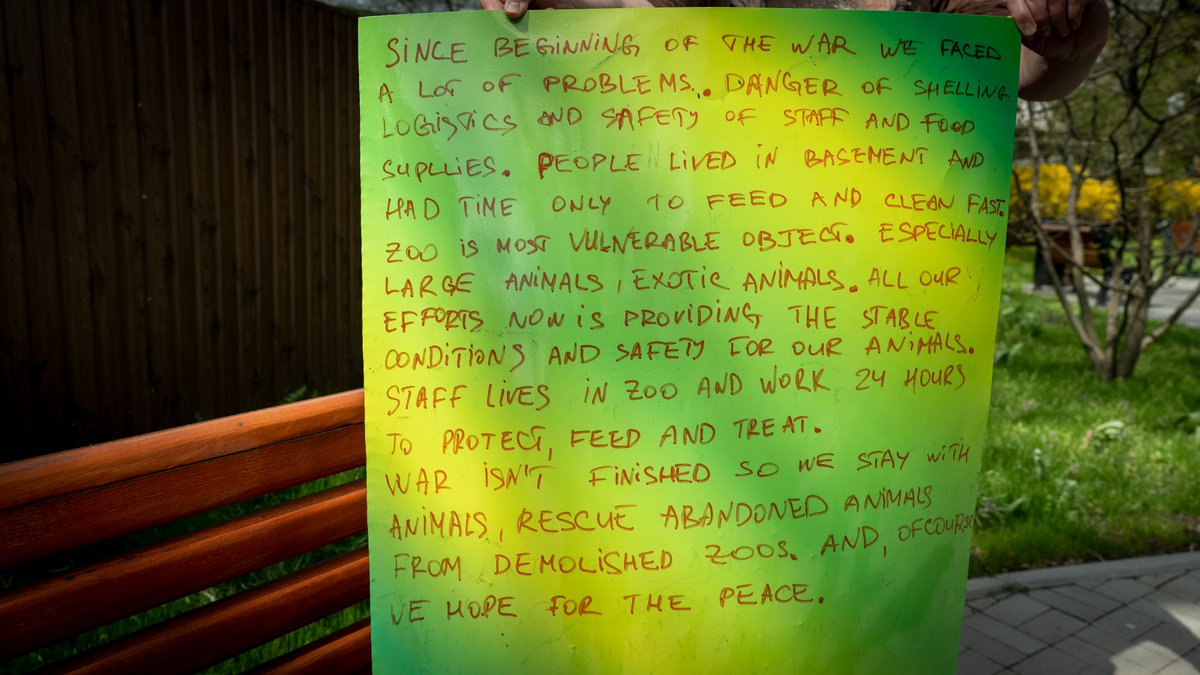 SINCE BEGINNING OF THE WAR WE FACED
A LOT OF PROBLEMS. DANGER OF SHELLING
LOGISTICS AND SAFETY OF STAFF AND FOOD
SUPLLIES. PEOPLE LIVED IN BASEMENT AND
HAD TIME ONLY TO FEED AND CLEAN FAST.
ZOO IS MOST VULNERABLE OBJECT. ESPECIALLY
LARGE ANIMALS, EXOTIC ANIMALS. ALL OUR
EFFORTS NOW IS PROVIDING THE STABLE
CONDITIONS AND SAFETY FOR OUR ANIMALS.
STAFF LIVES IN ZOO AND WORK 24 HOURS
TO PROTECT, FEED AND TREAT.
WAR ISN'T FINISHED SO WE STAY WITH
ANIMALS, RESCUE ABANDONED ANIMALS
FROM DEMOLISHED ZOOS. AND, OFCOURSE
WE HOPE FOR THE PEACE.